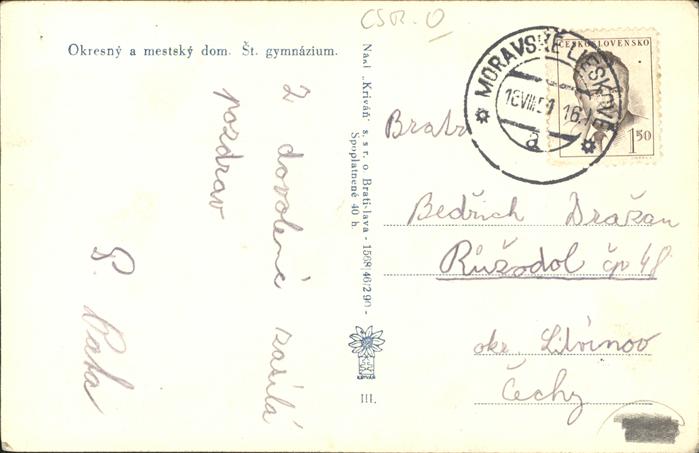 ČSR. O
Okresný a mestský dom. Št. gymnázium.
Z dovolené zasílá
pozdrav
P. Bata
Nakl. „Kriváň" s. s r. o. Bratislava - 1568/46/290 -
Spoplatnené 40 h.
KRIVÁŇ
III.
ČESKOSLOVENSKO
1 50
MORAVSKÉ LIESKOVÉ
18.VIII.51 16
a
Bratr
Bedřich Dražan
Růžodol čp 48
okr Litvínov
Čechy